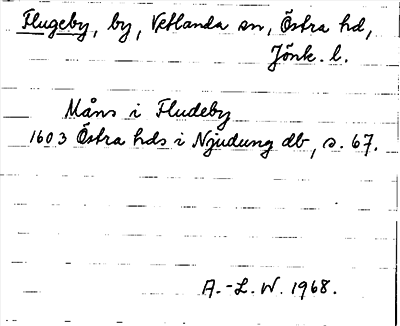 Flugeby, by, Vetlanda sn, Östra hd,
Jönk. l.
Måns i Fludeby
1603 Östra hds i Njudung db, s. 67.
A.-L. W. 1968.